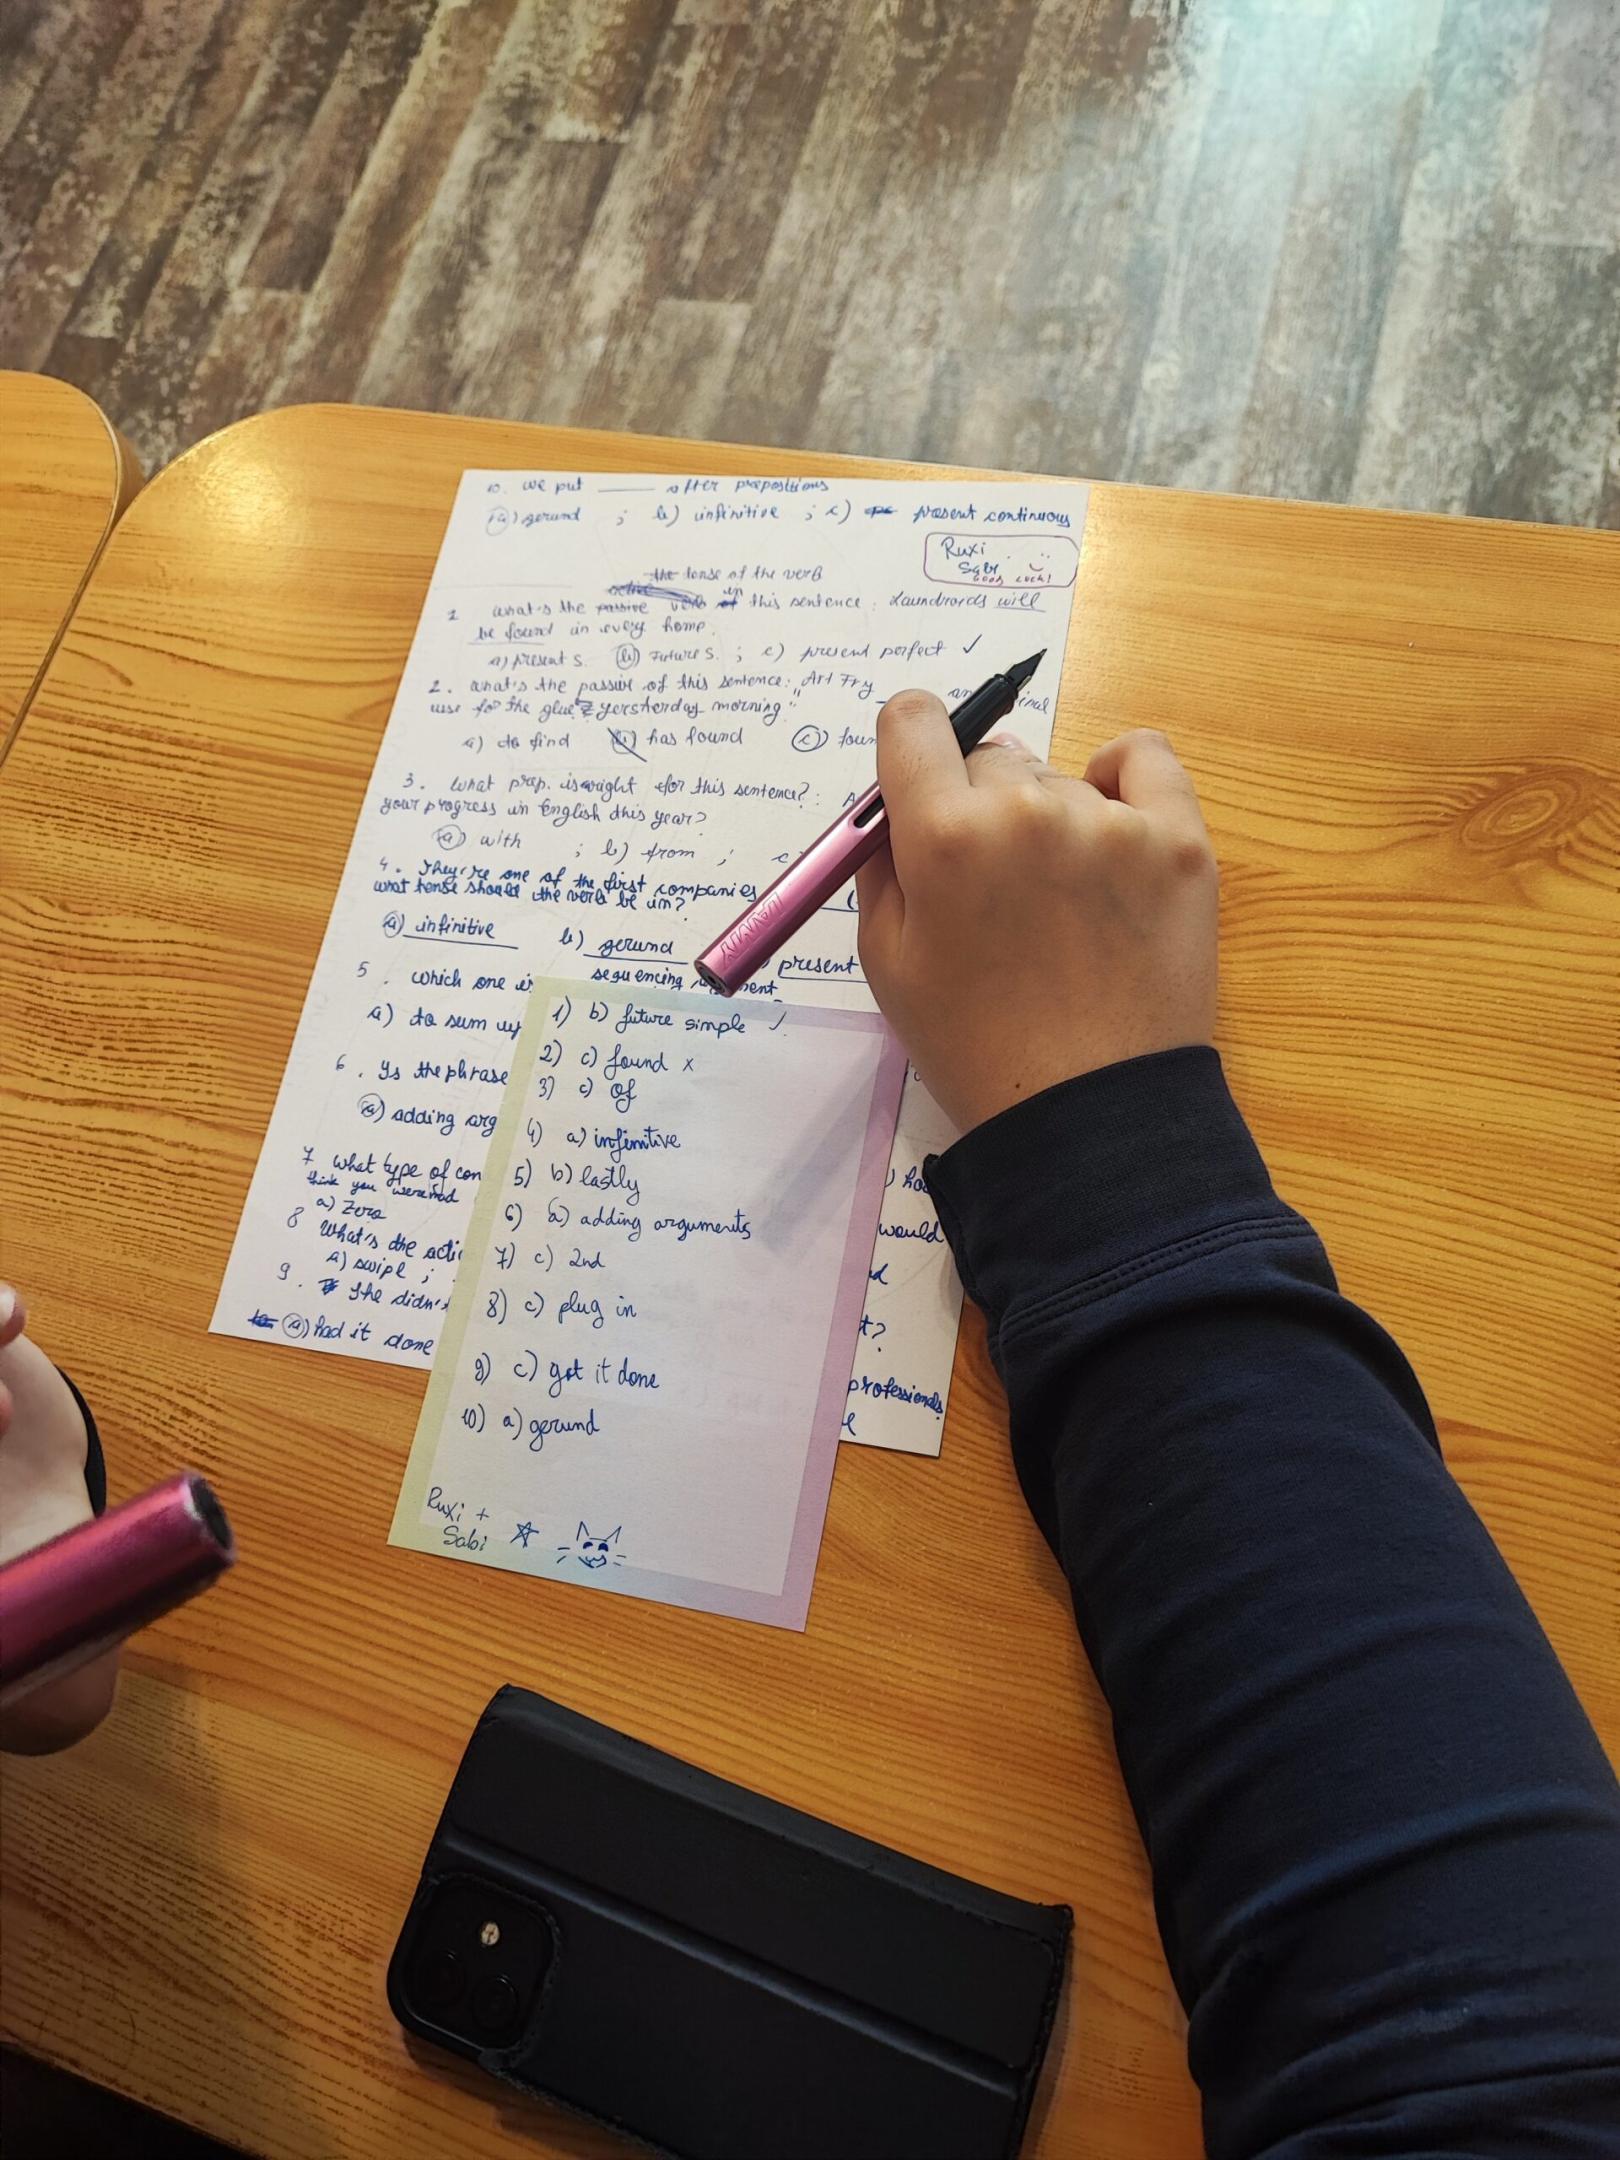 10. we put ____ after prepositions
a) gerund ; b) infinitive ; c) present continuous
Ruxi
Sabi
Good luck!
the tense of the verb
1 what's the passive verb in this sentence: Laundroids will
be found in every home.
a) present s. b) Future s. ; c) present perfect ✓
2. what's the passive of this sentence: "Art Fry
use for the glue yersterday morning"
a) to find b) has found c)
3. what prep. is right for this sentence? :
your progress in English this year?
a) with ; b) from ; c)
4. They're one of the first companies
what tense should the verb be in?
a) infinitive b) gerund present
5. which one is sequencing
a) to sum up
6. Is the phrase
a) adding arg
7 what type of con
think you were
a) Zero
would
8 What's the acti
a) swipe ;
9. She didn't
professionals
a) had it done
1) b) future simple ✓
2) c) found x
3) c) of
4) a) infinitive
5) b) lastly
6) a) adding arguments
7) c) 2nd
8) c) plug in
9) c) got it done
10) a) gerund
Ruxi +
Sabi
LAMY